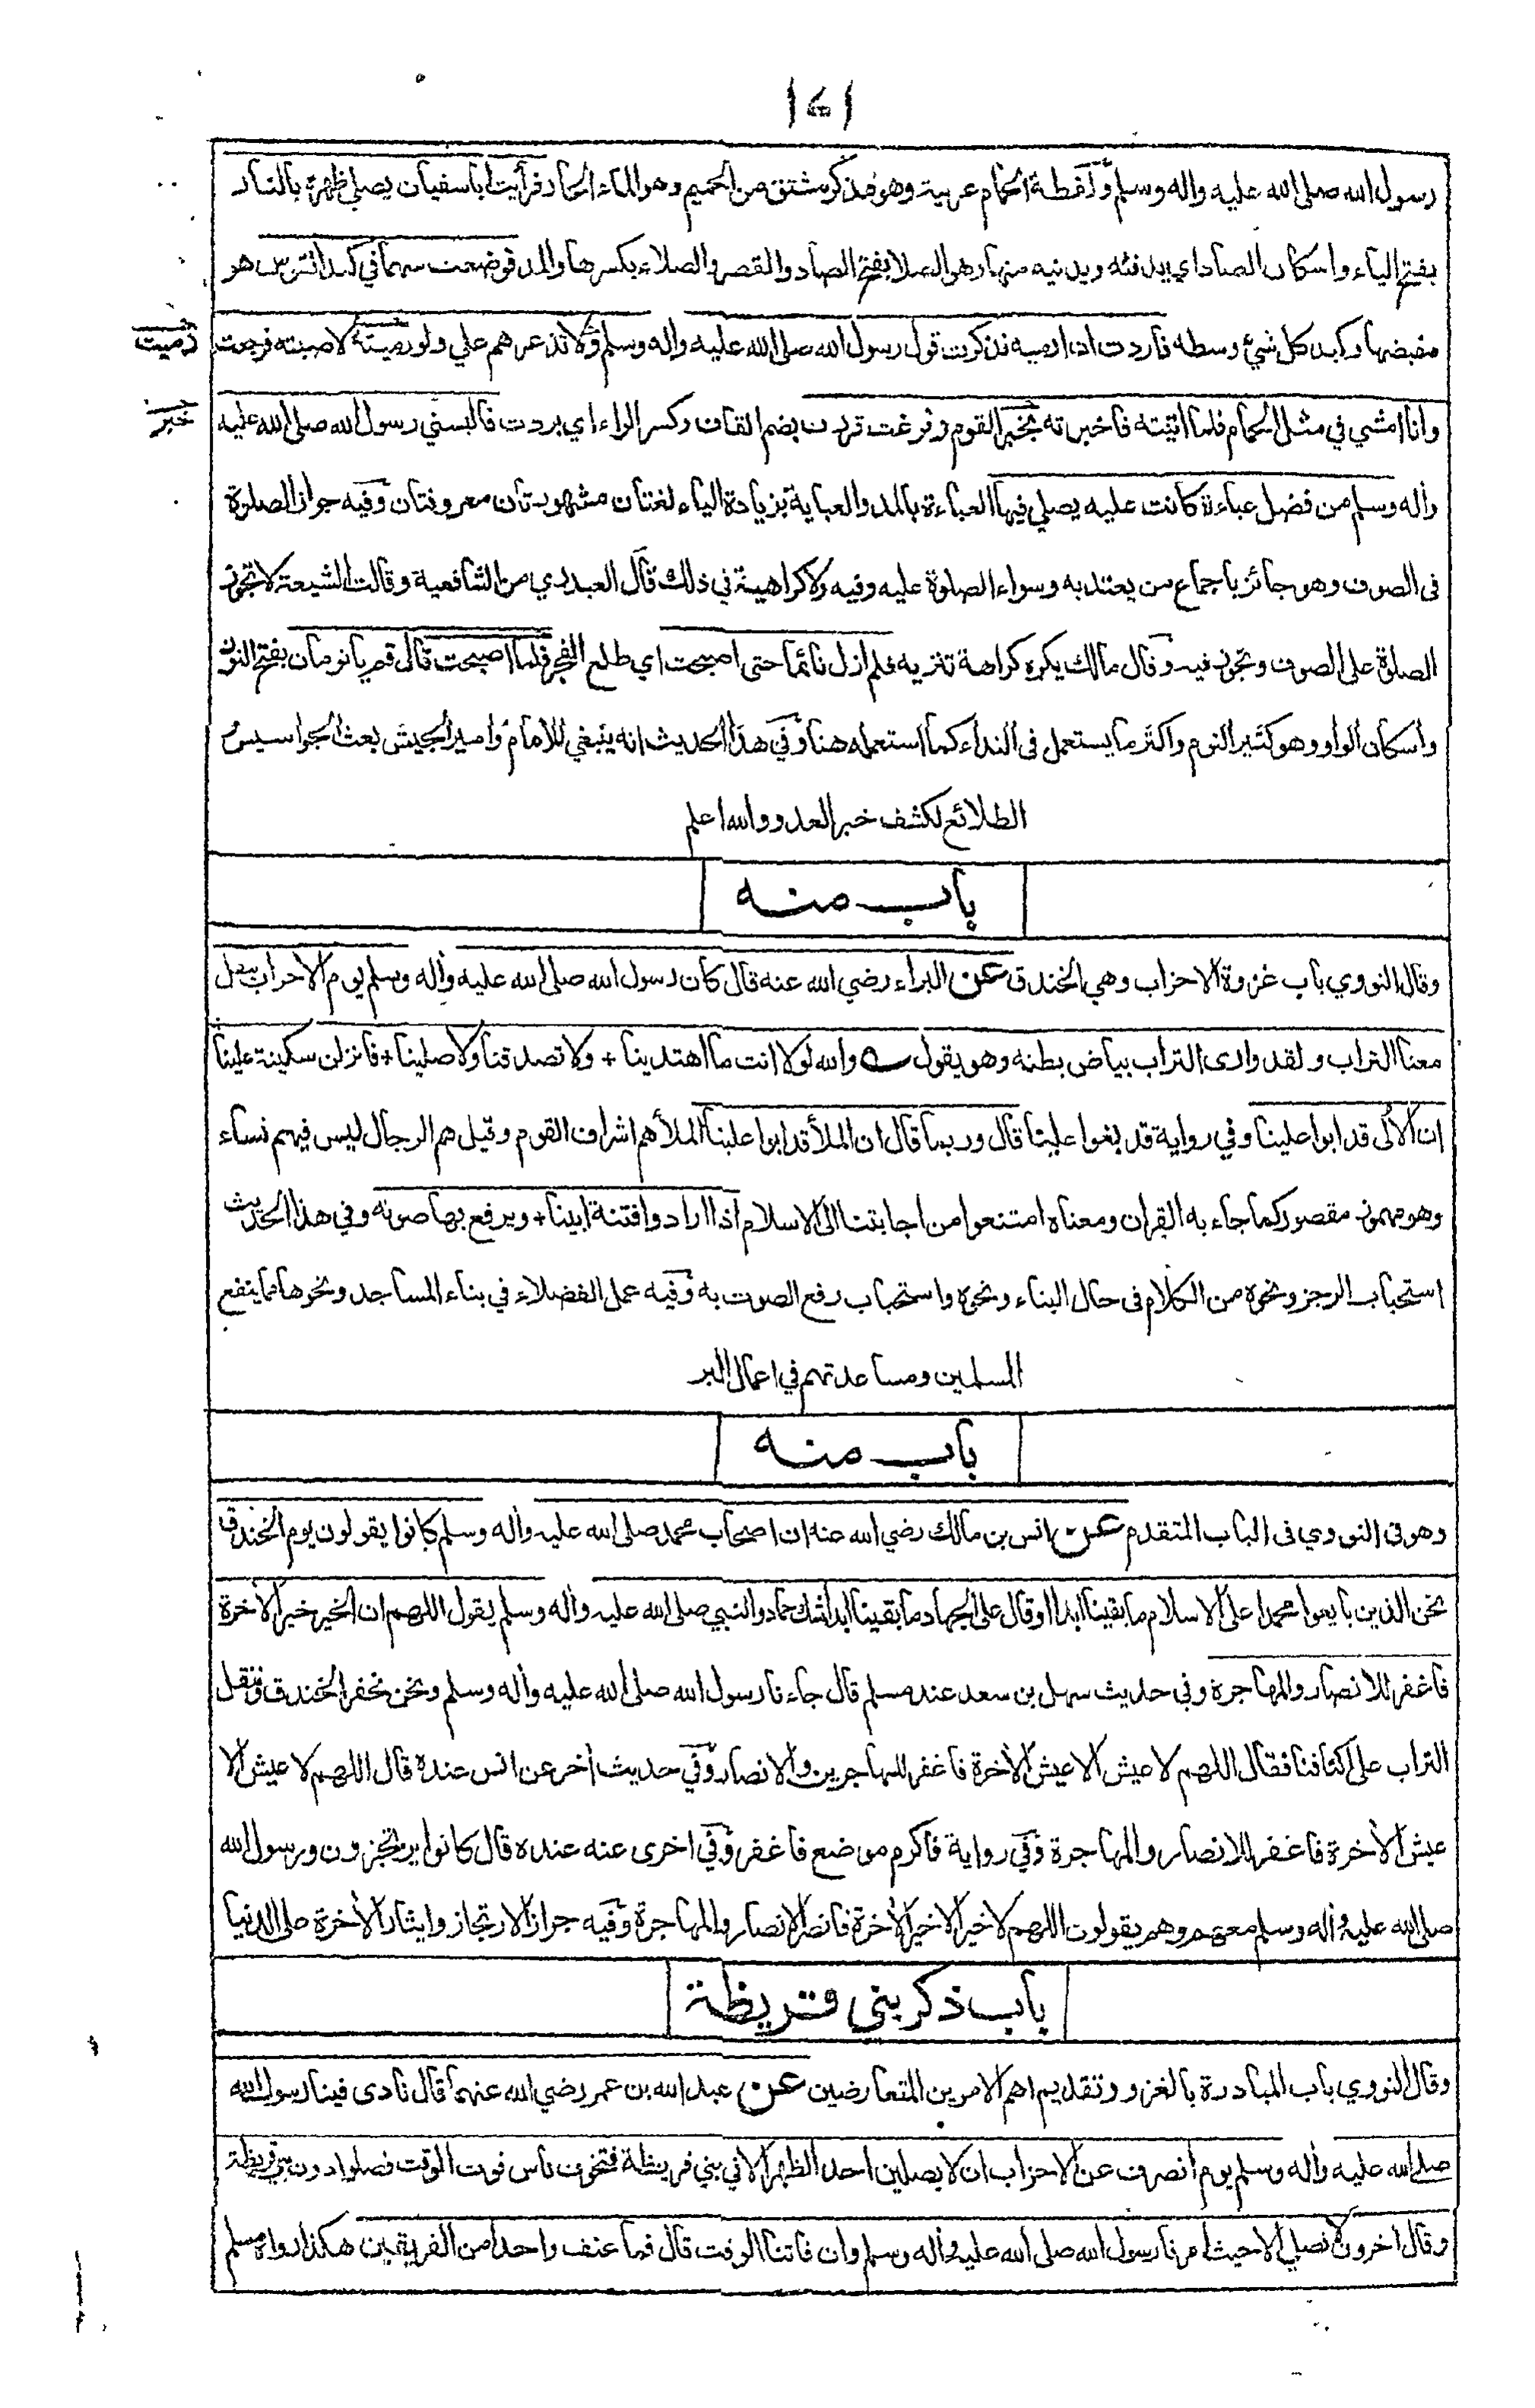 ١٤١
رسول الله صلى الله عليه واله وسلم ولفظة الحمام عربية وهو مذكر مشتق من الحميم وهو الماء الحار فرأيت اباسفيان يصلي ظهره بالنار
بفتح الياء واسكان الصاد اي يدفئه ويدنيه منها وهو الصلا بفتح الصاد والقصر والصلاء بكسرها والمد فوضعت سهما في كبد القوس هو
مقبضها وكبد كل شيء وسطه فاردت ان ارميه فذكرت قول رسول الله صلى الله عليه واله وسلم ولا تذعرهم علي ولو رميته لاصبته فرجعت
رميت
وانا امشي في مثل الحمام فلما اتيته فاخبرته بخبر القوم وفرغت قررت بضم القاف وكسر الراء اي بردت فالبسني رسول الله صلى الله عليه
خبر
واله وسلم من فضل عباءة كانت عليه يصلي فيها العباءة بالمد والعباية بزيادة الياء لغتان مشهورتان معروفتان وفيه جواز الصلوة
فى الصوف وهو جائز باجماع من يعتد به وسواء الصلوة عليه وفيه ولا كراهية في ذلك قال العبدري من الشافعية وقالت الشيعة لا تجوز
الصلوة على الصوف وتجوز فيه وقال مالك يكره كراهة تنزيه فلم ازل نائما حتى اصبحت اي طلع الفجر فلما اصبحت قال قم يا نومان بفتح النون
واسكان الواو وهو كثير النوم واكثر ما يستعمل فى النداء كما استعمله هنا وفي هذا الحديث انه ينبغي للامام وامير الجيش بعث الجواسيس و
الطلائع لكشف خبر العدو والله اعلم
باب منه
وقال النووي باب غزوة الاحزاب وهي الخندق عن البراء رضي الله عنه قال كان رسول الله صلى الله عليه واله وسلم يوم الاحزاب ينقل
معنا التراب ولقد وارى التراب بياض بطنه وهو يقول والله لولا انت ما اهتدينا + ولا تصدقنا ولا صلينا + فانزلن سكينة علينا
ان الألى قد ابوا علينا وفي رواية قد بغوا علينا قال وربما قال ان الملأ قد ابوا علينا الملأ هم اشراف القوم وقيل هم الرجال ليس فيهم نساء
وهو مهموز مقصور كما جاء به القران ومعناه امتنعوا من اجابتنا الى الاسلام اذا ارادوا فتنة ابينا + ويرفع بها صوته وفي هذا الحديث
استحباب الرجز ونحوه من الكلام فى حال البناء ونحوه واستحباب رفع الصوت به وفيه عمل الفضلاء في بناء المساجد ونحوها مما ينفع
المسلمين ومساعدتهم في اعمال البر
باب منه
وهو فى النووي فى الباب المتقدم عن انس بن مالك رضي الله عنه ان اصحاب محمد صلى الله عليه واله وسلم كانوا يقولون يوم الخندق
نحن الذين بايعوا محمدا على الاسلام ما بقينا ابدا او قال على الجهاد ما بقينا ابدا شك حماد والنبي صلى الله عليه واله وسلم يقول اللهم ان الخير خير الأخرة
فاغفر للانصار والمهاجرة وفي حديث سهل بن سعد عند مسلم قال جاءنا رسول الله صلى الله عليه واله وسلم ونحن نحفر الخندق وننقل
التراب على اكتافنا فقال اللهم لا عيش الا عيش الأخرة فاغفر للمهاجرين والانصار وفي حديث أخر عن انس عنده قال اللهم لا عيش الا
عيش الأخرة فاغفر للانصار والمهاجرة وفي رواية فاكرم موضع فاغفر وفي اخرى عنه عنده قال كانوا يرتجزون ورسول الله
صلى الله عليه واله وسلم معهم وهم يقولون اللهم لا خير الا خير الأخرة فانصر الانصار والمهاجرة وفيه جواز الارتجاز وايثار الأخرة على الدنيا
باب ذكر بني قريظة
وقال النووي باب المبادرة بالغزو وتقديم اهم الامرين المتعارضين عن عبد الله بن عمر رضي الله عنهما قال نادى فينا رسول الله
صلى الله عليه واله وسلم يوم انصرف عن الاحزاب ان لا يصلين احد الظهر الا في بني قريظة فتخوف ناس فوت الوقت فصلوا دون بني قريظة
وقال اخرون لا نصلي الا حيث أمرنا رسول الله صلى الله عليه واله وسلم وان فاتنا الوقت قال فما عنف واحدا من الفريقين هكذا رواه مسلم